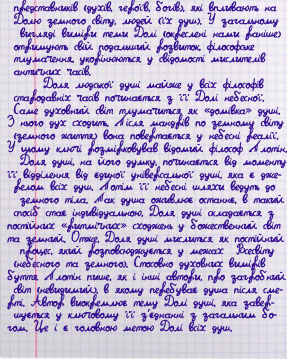 представників (духів, героїв, богів), які впливають на
Долю земного світу, людей (їх душ). У загальному
вигляді виміри теми Долі (окреслені нами раніше)
отримують свій подальший розвиток, філософське
тлумачення, укорінюються у свідомості мислителів
античних часів.
Доля людської душі майже у всіх філософів
стародавніх часів починається з її Долі небесної.
Саме духовний світ тлумачиться як "домівка" душі.
З нього дух сходить. Після мандрів по земному світу
(земного життя) вона повертається у небесні реалії.
У цьому ключі розмірковував відомий філософ Плотін.
Доля душі, на його думку, починається від моменту
її відділення від єдиної універсальної душі, яка є дже-
релом всіх душ. Потім її небесні шляхи ведуть до
земного тіла. Так душа оживлює останнє, в такий
спосіб стає індивідуальною. Доля душі складається з
постійних "ритмічних" сходжень у божественний світ
та земний. Отже, Доля душі мислиться як постійний
процес, який розповсюджується у межах Всесвіту
(небесного та земного). Стосовно духовних вимірів
буття Плотін пише, як і інші автори, про загробний
світ (невидимий), в якому перебуває душа після сме-
рті. Автор виокремлює тему Долі душі, яка завер-
шується у ключовому її з'єднанні з загальним бо-
гом. Це і є головною метою Долі всіх душ.